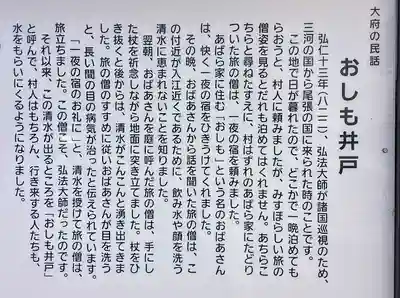 大府の民話
おしも井戸
弘仁十三年（八二二）、弘法大師が諸国巡視のため、
三河の国から尾張の国に来られた時のことです。
この地で日が暮れたので、どこかで一晩泊めても
らおうと、村人に頼みましたが、みすぼらしい旅の
僧姿を見るとだれも泊めてはくれません。あちらこ
ちらと尋ねたすえに、村はずれのあばら家にたどり
ついた旅の僧は、一夜の宿を頼みました。
あばら家に住む「おしも」という名のおばあさん
は、快く一夜の宿をひきうけてくれました。
その晩、おばあさんから話を聞いた旅の僧は、こ
の付近が入江近くであるために、飲み水や顔を洗う
清水に恵まれないことを知りました。
翌朝、おばあさんを庭に呼んだ旅の僧は、手にし
た杖を祈念しながら地面に突き立てました。杖をひ
き抜くと後からは、清水がこんこんと湧き出てきま
した。旅の僧のすすめに従いおばあさんが目を洗う
と、長い間の目の病気が治ったと伝えられています。
「一夜の宿のお礼に」と、清水を授けて旅の僧は、
旅立ちました。この僧こそ、弘法大師だったのです。
それ以来、この清水が出るところを「おしも井戸」
と呼んで、村人はもちろん、行き来する人たちも、
水をもらいにくるようになりました。